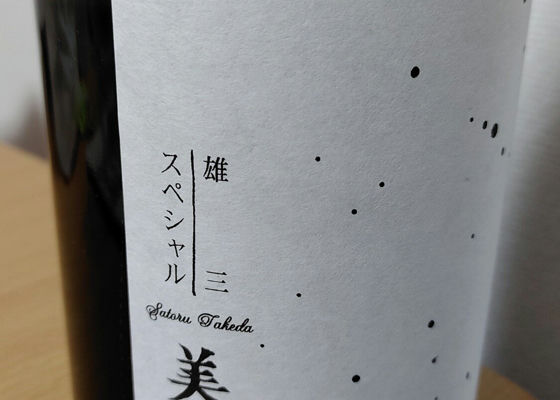 雄三
スペシャル
Satoru Takeda
美